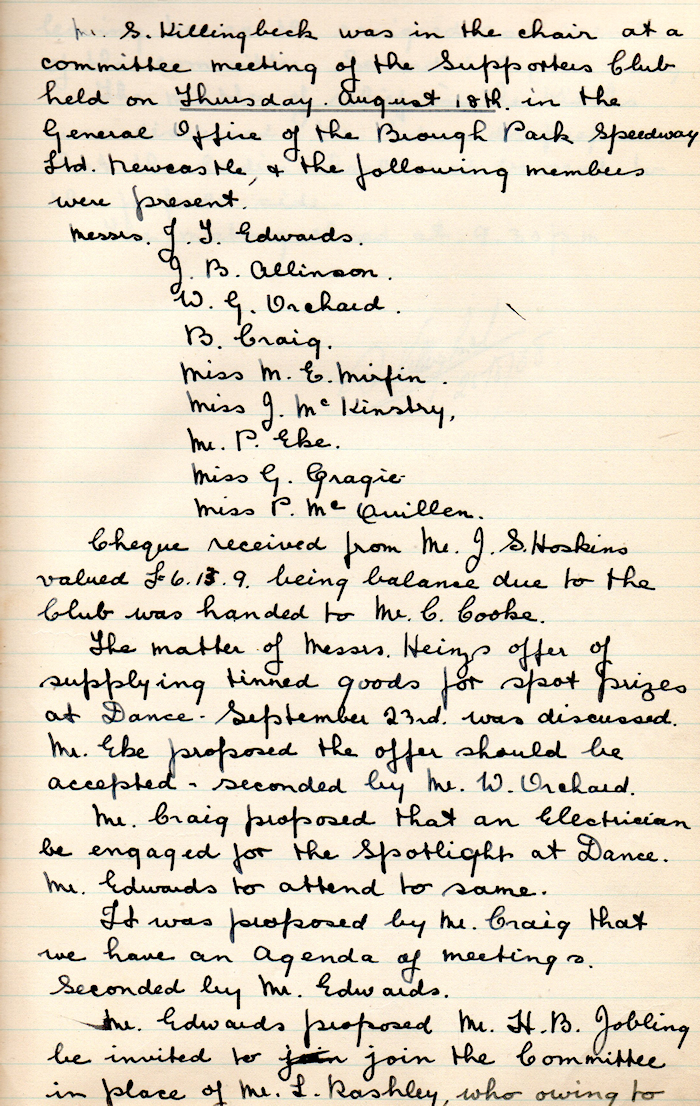 Mr. S. Killingbeck was in the chair at a
committee meeting of the Supporters Club
held on Thursday. August 18th. in the
General Office of the Brough Park Speedway
Ltd. Newcastle, & the following members
were present.
Messrs. J. T. Edwards.
J. B. Allinson.
W. G. Orchard.
B. Craig.
Miss M. E. Mirfin.
Miss J. McKinstry,
Mr. P. Eke.
Miss G. Gragie
Miss P. McQuillen.
Cheque received from Mr. J. S. Hoskins
valued £6.13.9. being balance due to the
Club was handed to Mr. C. Cooke.
The matter of Messrs. Heinzs offer of
supplying tinned goods for spot prizes
at Dance - September 23rd. was discussed.
Mr. Eke proposed the offer should be
accepted - seconded by Mr. W. Orchard.
Mr. Craig proposed that an Electrician
be engaged for the Spotlight at Dance.
Mr. Edwards to attend to same.
It was proposed by Mr. Craig that
we have an Agenda of meetings.
Seconded by Mr. Edwards.
Mr. Edwards proposed Mr. H. B. Jobling
be invited to join join the Committee
in place of Mr. L. Rashley, who owing to